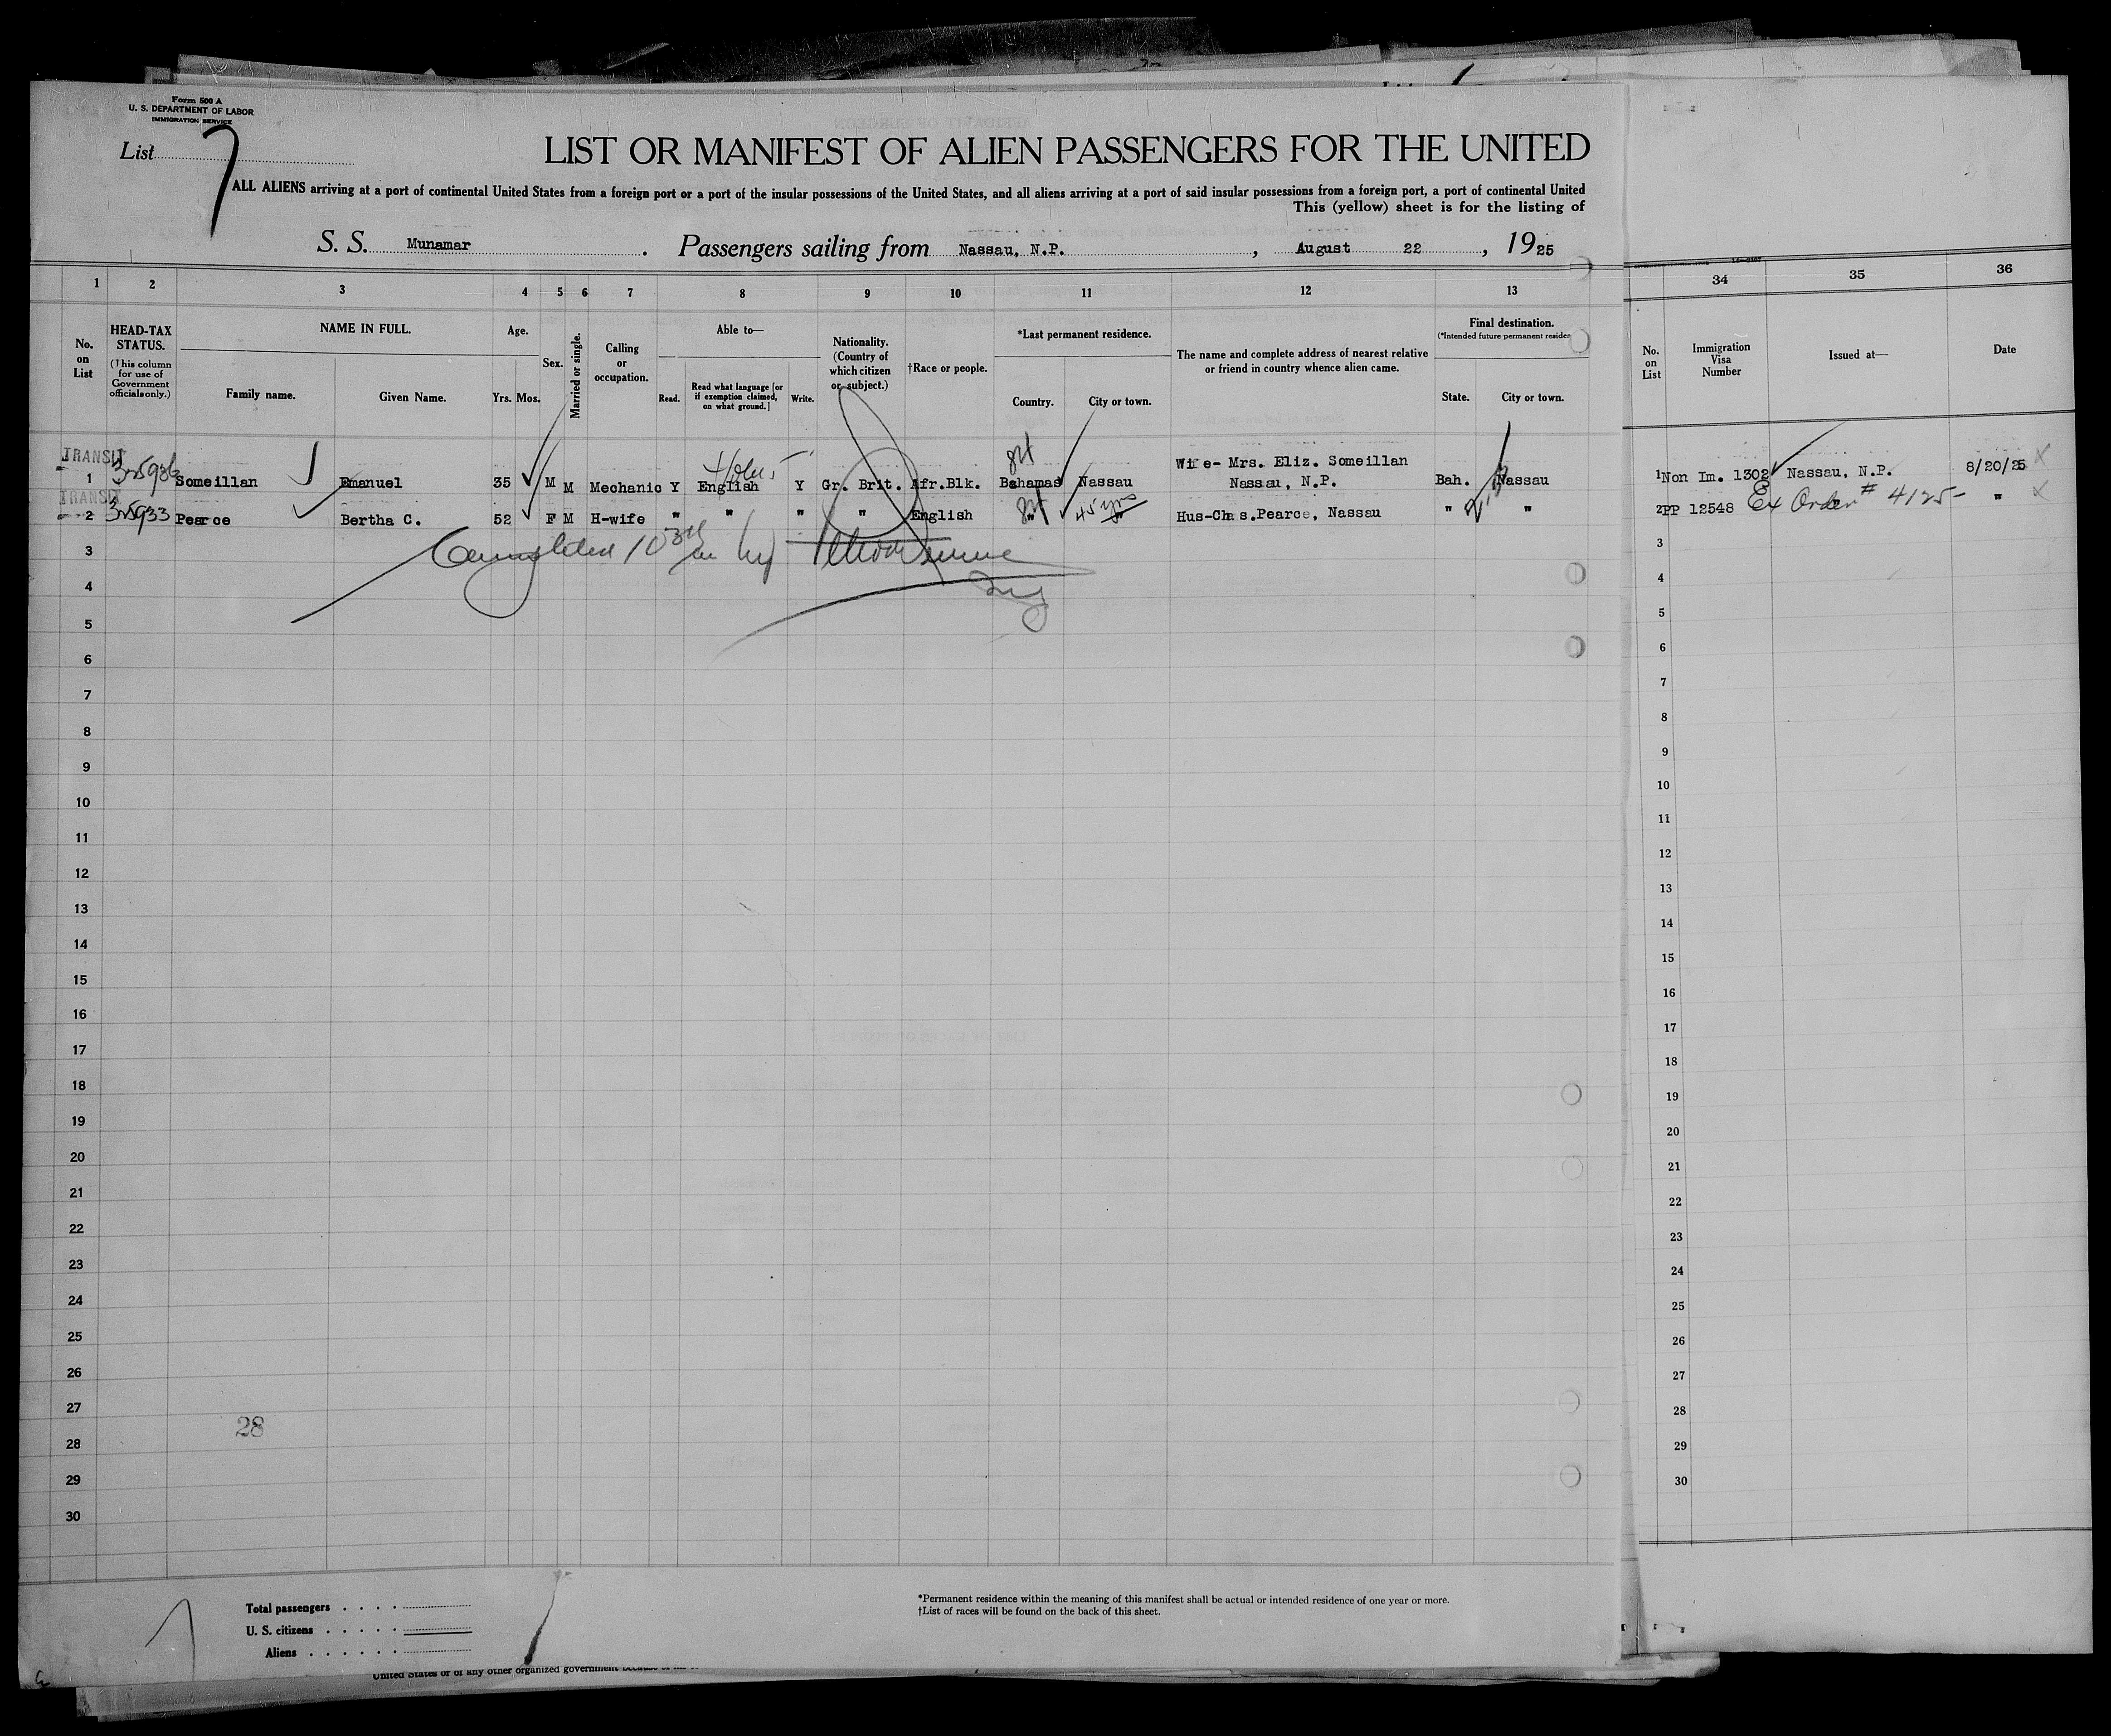 Form 500 A
U. S. DEPARTMENT OF LABOR
IMMIGRATION SERVICE
List 7
LIST OR MANIFEST OF ALIEN PASSENGERS FOR THE UNITED
ALL ALIENS arriving at a port of continental United States from a foreign port or a port of the insular possessions of the United States, and all aliens arriving at a port of said insular possessions from a foreign port, a port of continental United
This (yellow) sheet is for the listing of
S. S. Munamar. Passengers sailing from Nassau, N.P., August 22, 1925
1 2 3 4 5 6 7 8 9 10 11 12 13 34 35 36
No. on List
HEAD-TAX STATUS.
(This column for use of Government officials only.)
NAME IN FULL.
Family name. Given Name.
Age.
Yrs. Mos.
Sex.
Married or single.
Calling or occupation.
Able to—
Read. Read what language [or if exemption claimed, on what ground.] Write.
Nationality. (Country of which citizen or subject.)
†Race or people.
*Last permanent residence.
Country. City or town.
The name and complete address of nearest relative or friend in country whence alien came.
Final destination.
(*Intended future permanent residen
State. City or town.
No. on List
Immigration Visa Number
Issued at—
Date
TRANSIT
1 Someillan Emanuel 35 M M Mechanic Y English Y Gr. Brit. Afr.Blk. Bahamas Nassau Wife- Mrs. Eliz. Someillan Nassau, N.P. Bah. Nassau 1 Non Im. 1302 Nassau, N.P. 8/20/25
TRANSIT
2 325933 Pearce Bertha C. 52 F M H-wife " " " " English " 45 yrs " Hus-Chas.Pearce, Nassau " " 2 PP 12548 Ex Order # 4125- " "
3 Completed by 3
4 4
5 5
6 6
7 7
8 8
9 9
10 10
11 11
12 12
13 13
14 14
15 15
16 16
17 17
18 18
19 19
20 20
21 21
22 22
23 23
24 24
25 25
26 26
27 27
28
28 28
29 29
30 30
Total passengers
U. S. citizens
Aliens
*Permanent residence within the meaning of this manifest shall be actual or intended residence of one year or more.
†List of races will be found on the back of this sheet.
United States or of any other organized government because of